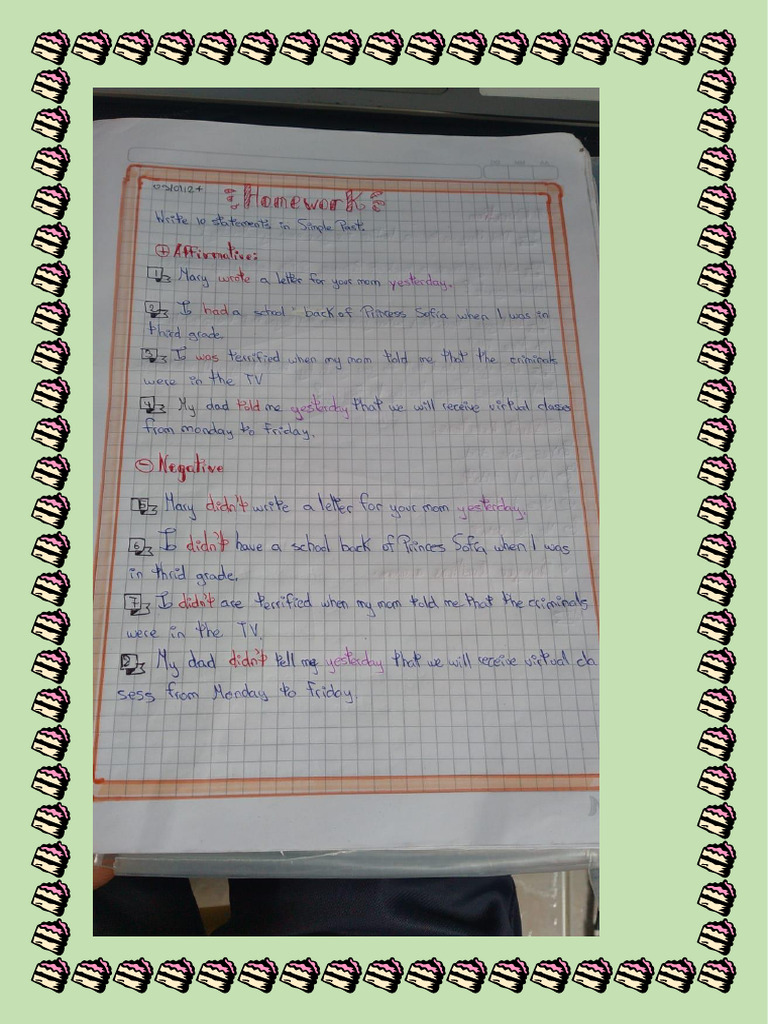 ¡Homework!
Write 10 statements in Simple Past.
+ Affirmative:
1 Mary wrote a letter for your mom yesterday.
2 I had a school back of Princess Sofia when I was in
third grade.
3 I was terrified when my mom told me that the criminals
were in the TV
4 My dad told me yesterday that we will receive virtual clases
from monday to Friday.
- Negative
5 Mary didn't write a letter for your mom yesterday.
6 I didn't have a school back of Princes Sofia when I was
in thrid grade.
7 I didn't are terrified when my mom told me that the criminals
were in the TV.
8 My dad didn't tell me yesterday that we will receive virtual cla
sess from Monday to Friday.